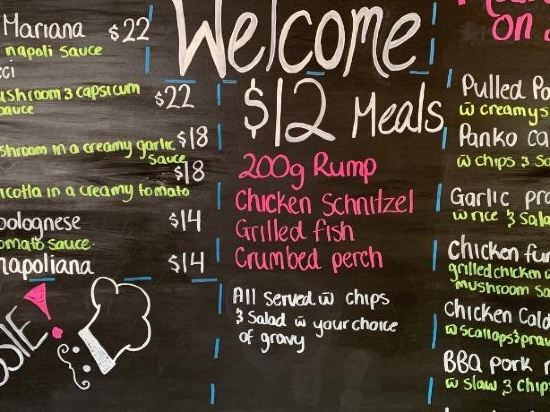 Mariana $22
napoli sauce
mushroom & capsicum
sauce $22
mushroom in a creamy garlic $18
sauce
ricotta in a creamy tomato $18
bolognese $14
tomato sauce
napoliana $14
Welcome
$12 Meals
200g Rump
Chicken Schnitzel
Grilled fish
Crumbed perch
All served w chips
& salad w your choice
of gravy
on
Pulled
w creamy
Panko
w chips &
Garlic
w rice &
Chicken
grilled chicken
mushroom
Chicken
w scallops &
BBQ Pork
w slaw & chips